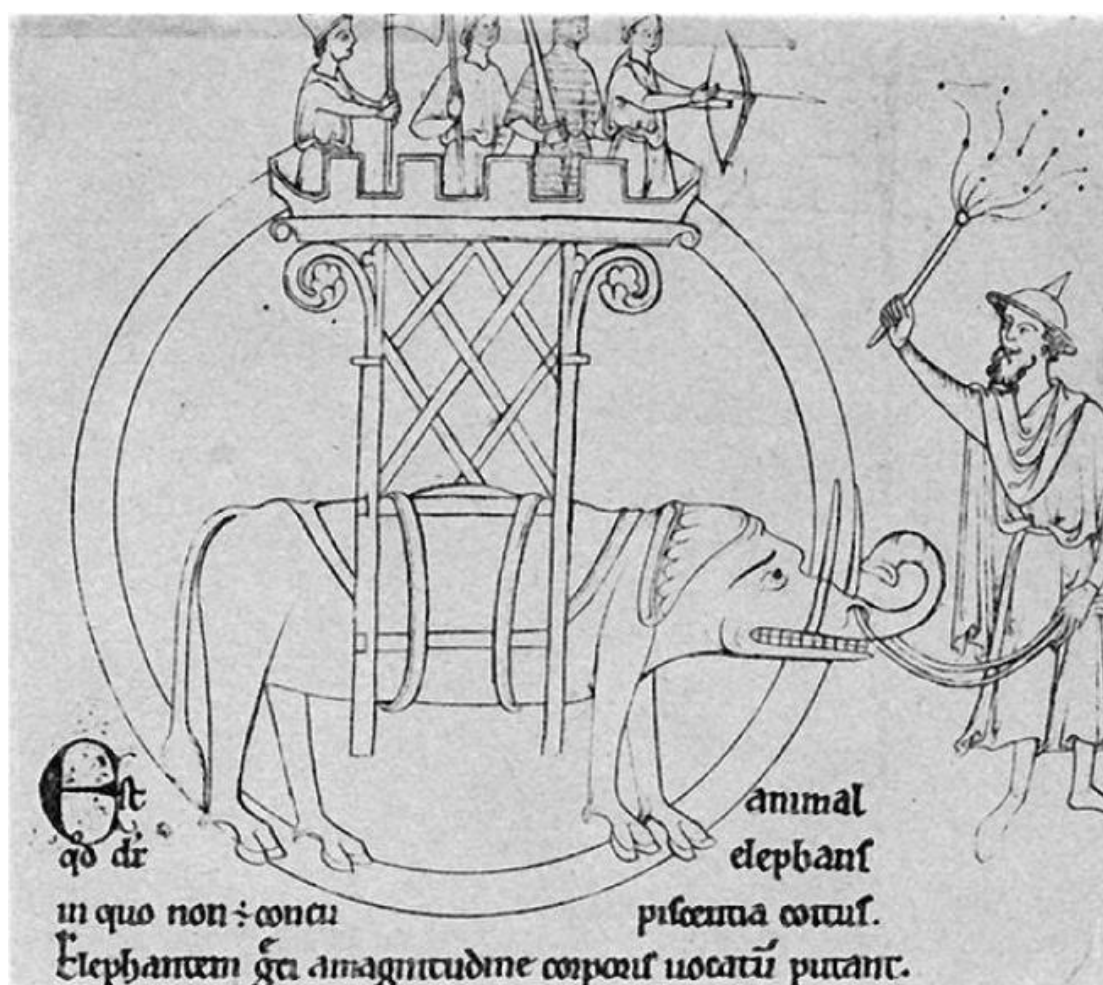 Est animal
qd dr elephans
in quo non ÷ concu piscentia coitus.
Elephantem gͥci a magnitudine corporis uocatū putant.